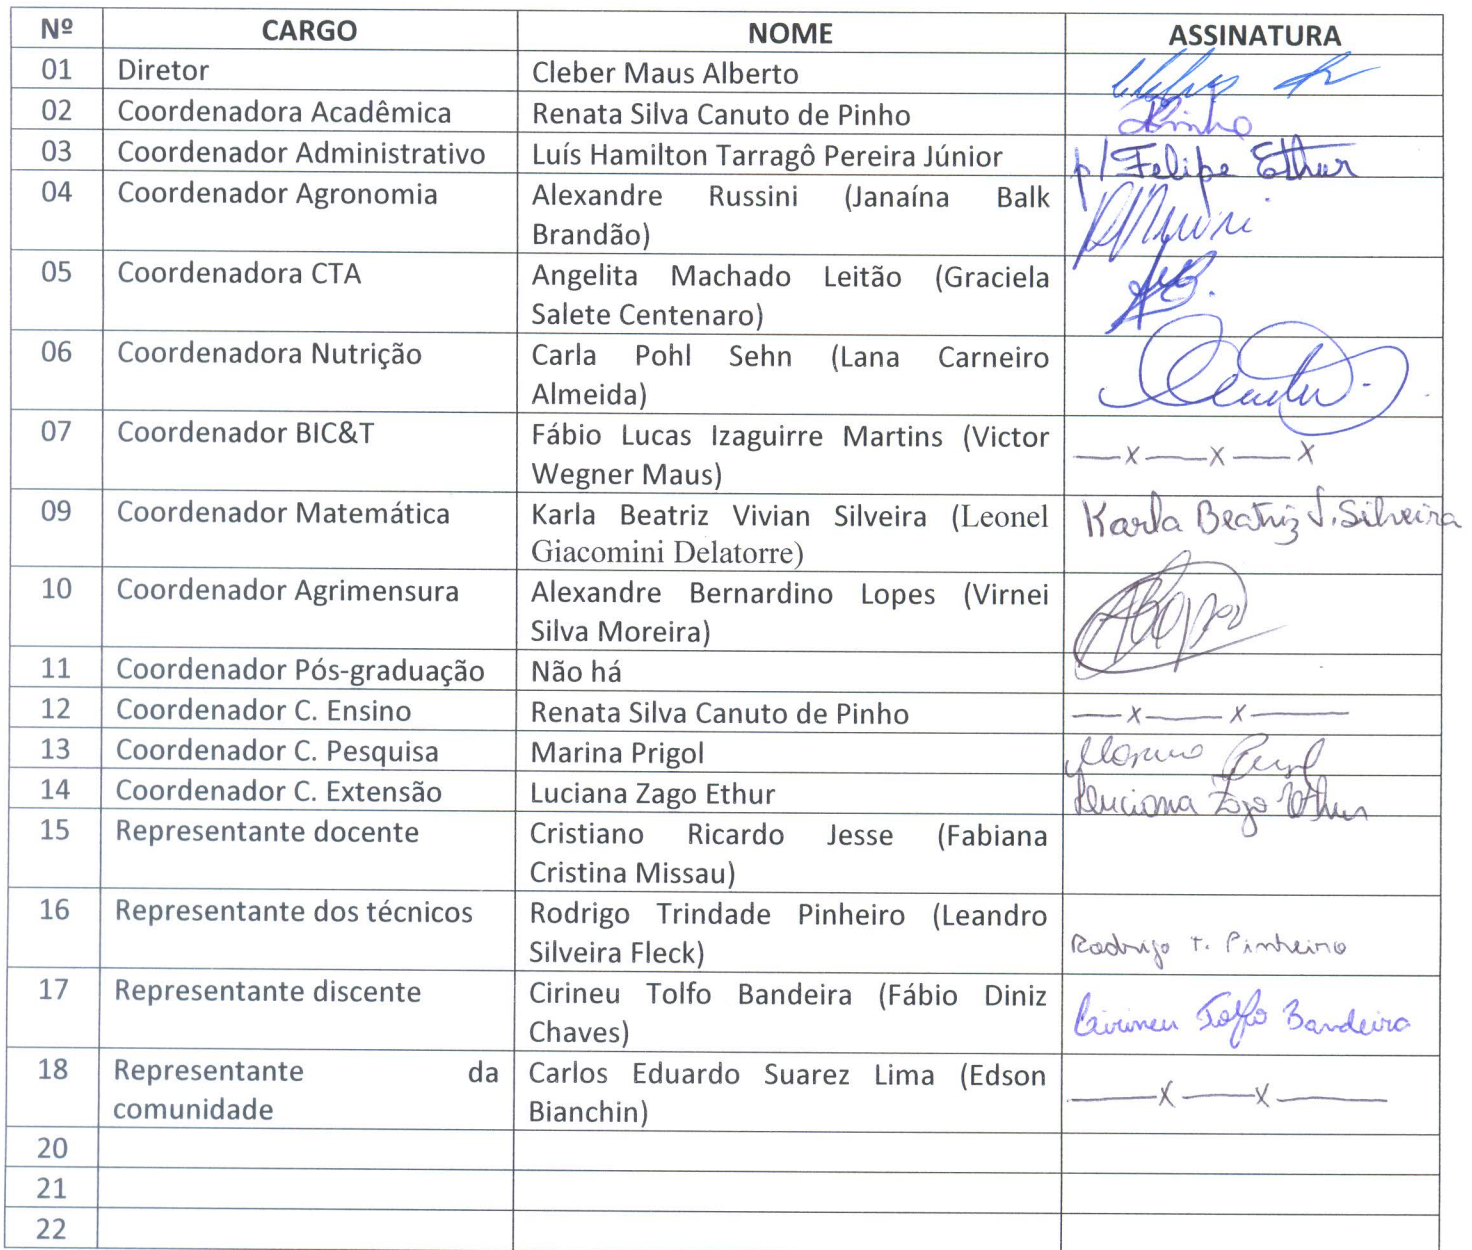 Nº CARGO NOME ASSINATURA
01 Diretor Cleber Maus Alberto
02 Coordenadora Acadêmica Renata Silva Canuto de Pinho Pinho
03 Coordenador Administrativo Luís Hamilton Tarragô Pereira Júnior p/ Felipe Ethur
04 Coordenador Agronomia Alexandre Russini (Janaína Balk
Brandão)
05 Coordenadora CTA Angelita Machado Leitão (Graciela
Salete Centenaro)
06 Coordenadora Nutrição Carla Pohl Sehn (Lana Carneiro
Almeida)
07 Coordenador BIC&T Fábio Lucas Izaguirre Martins (Victor
Wegner Maus) —x—x—x
09 Coordenador Matemática Karla Beatriz Vivian Silveira (Leonel Karla Beatriz V. Silveira
Giacomini Delatorre)
10 Coordenador Agrimensura Alexandre Bernardino Lopes (Virnei
Silva Moreira)
11 Coordenador Pós-graduação Não há
12 Coordenador C. Ensino Renata Silva Canuto de Pinho —x—x—
13 Coordenador C. Pesquisa Marina Prigol Marina Prigol
14 Coordenador C. Extensão Luciana Zago Ethur Luciana Zago Ethur
15 Representante docente Cristiano Ricardo Jesse (Fabiana
Cristina Missau)
16 Representante dos técnicos Rodrigo Trindade Pinheiro (Leandro
Silveira Fleck) Rodrigo T. Pinheiro
17 Representante discente Cirineu Tolfo Bandeira (Fábio Diniz
Chaves) Cirineu Tolfo Bandeira
18 Representante da Carlos Eduardo Suarez Lima (Edson
comunidade Bianchin) —x—x—
20
21
22